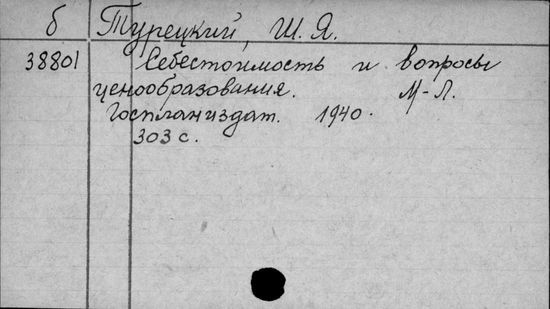 б Турецкий, Ш. Я.
38801 Себестоимость и вопросы
ценообразования. М-Л.
Госпланиздат. 1940.
303 с.